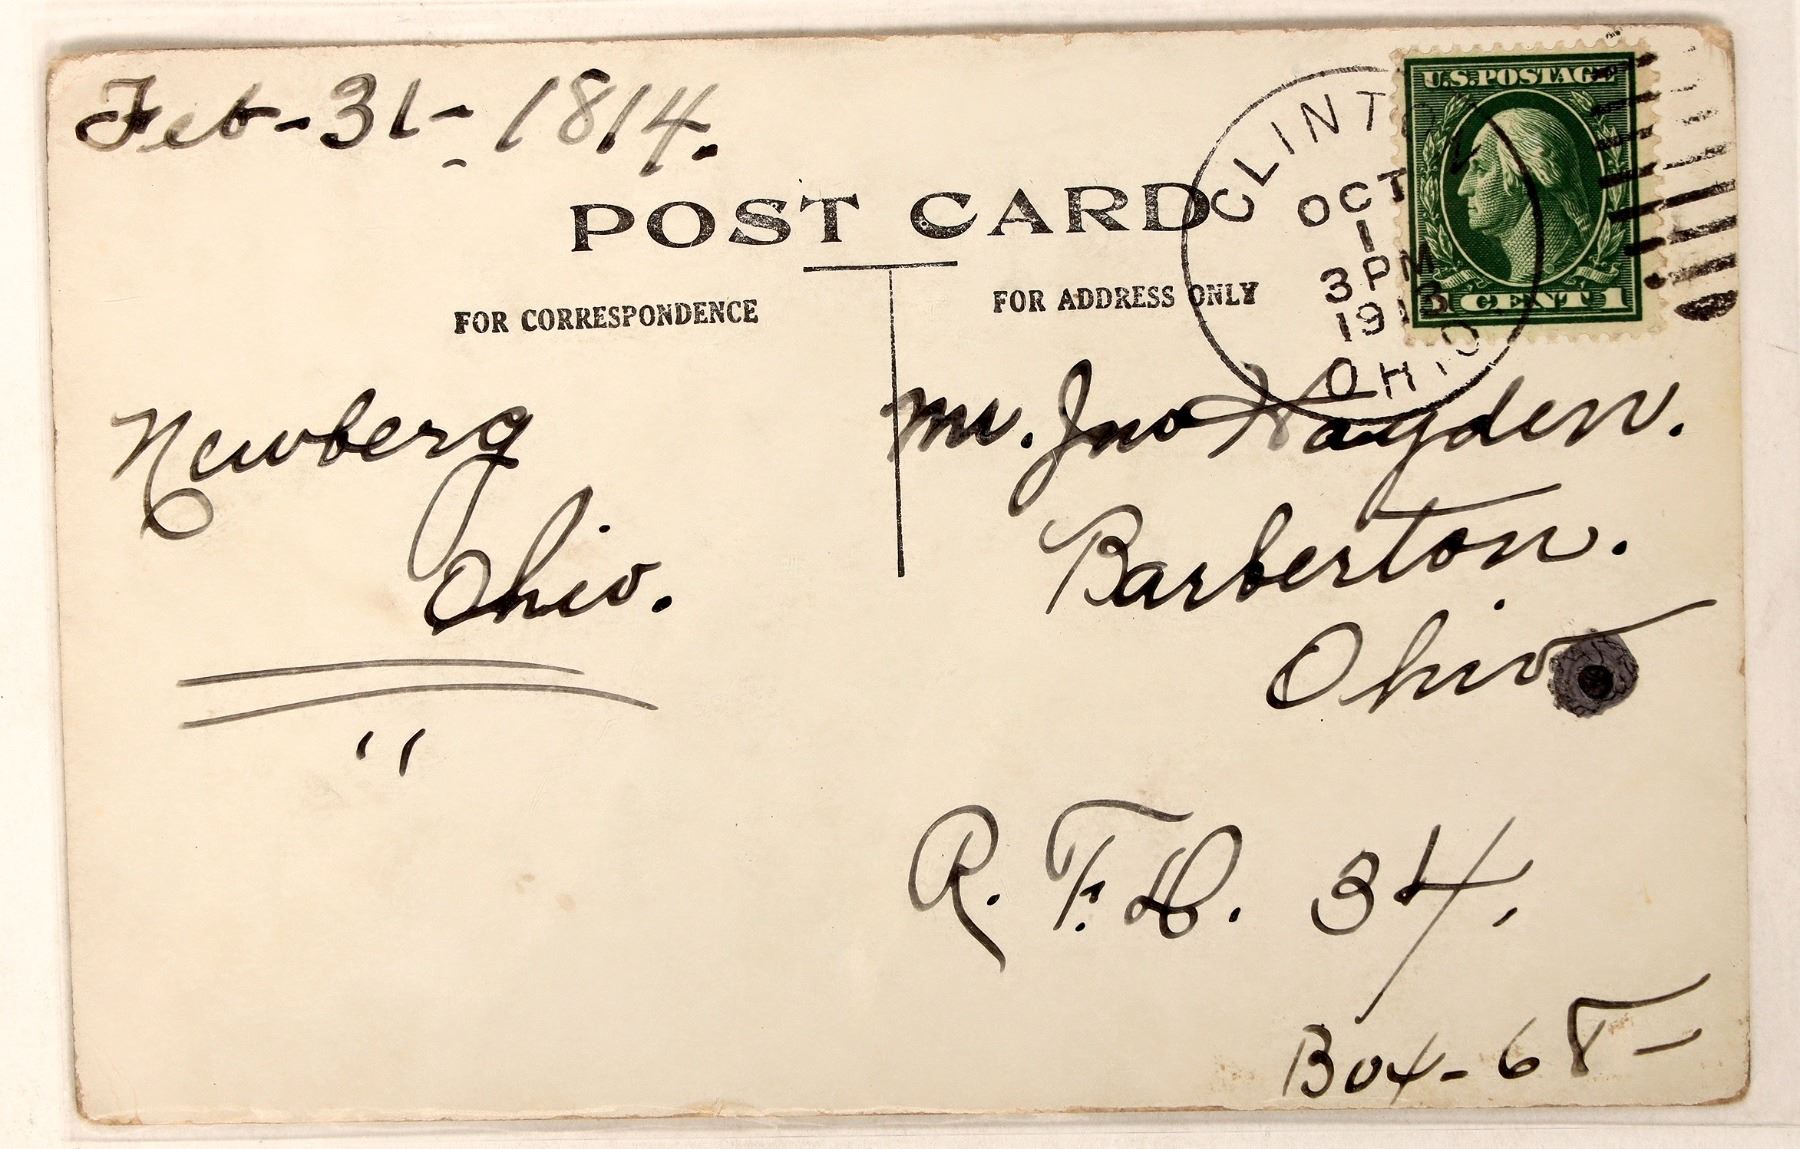 Feb-31-1814.
POST CARD
CLINTON
OCT
1
3 PM
1913
OHIO
U.S. POSTAGE
CENT 1
FOR CORRESPONDENCE
FOR ADDRESS ONLY
Newberg
Ohio.
"
Mr. Jno Hayden.
Barberton.
Ohio
R. F. D. 34.
Box-68-